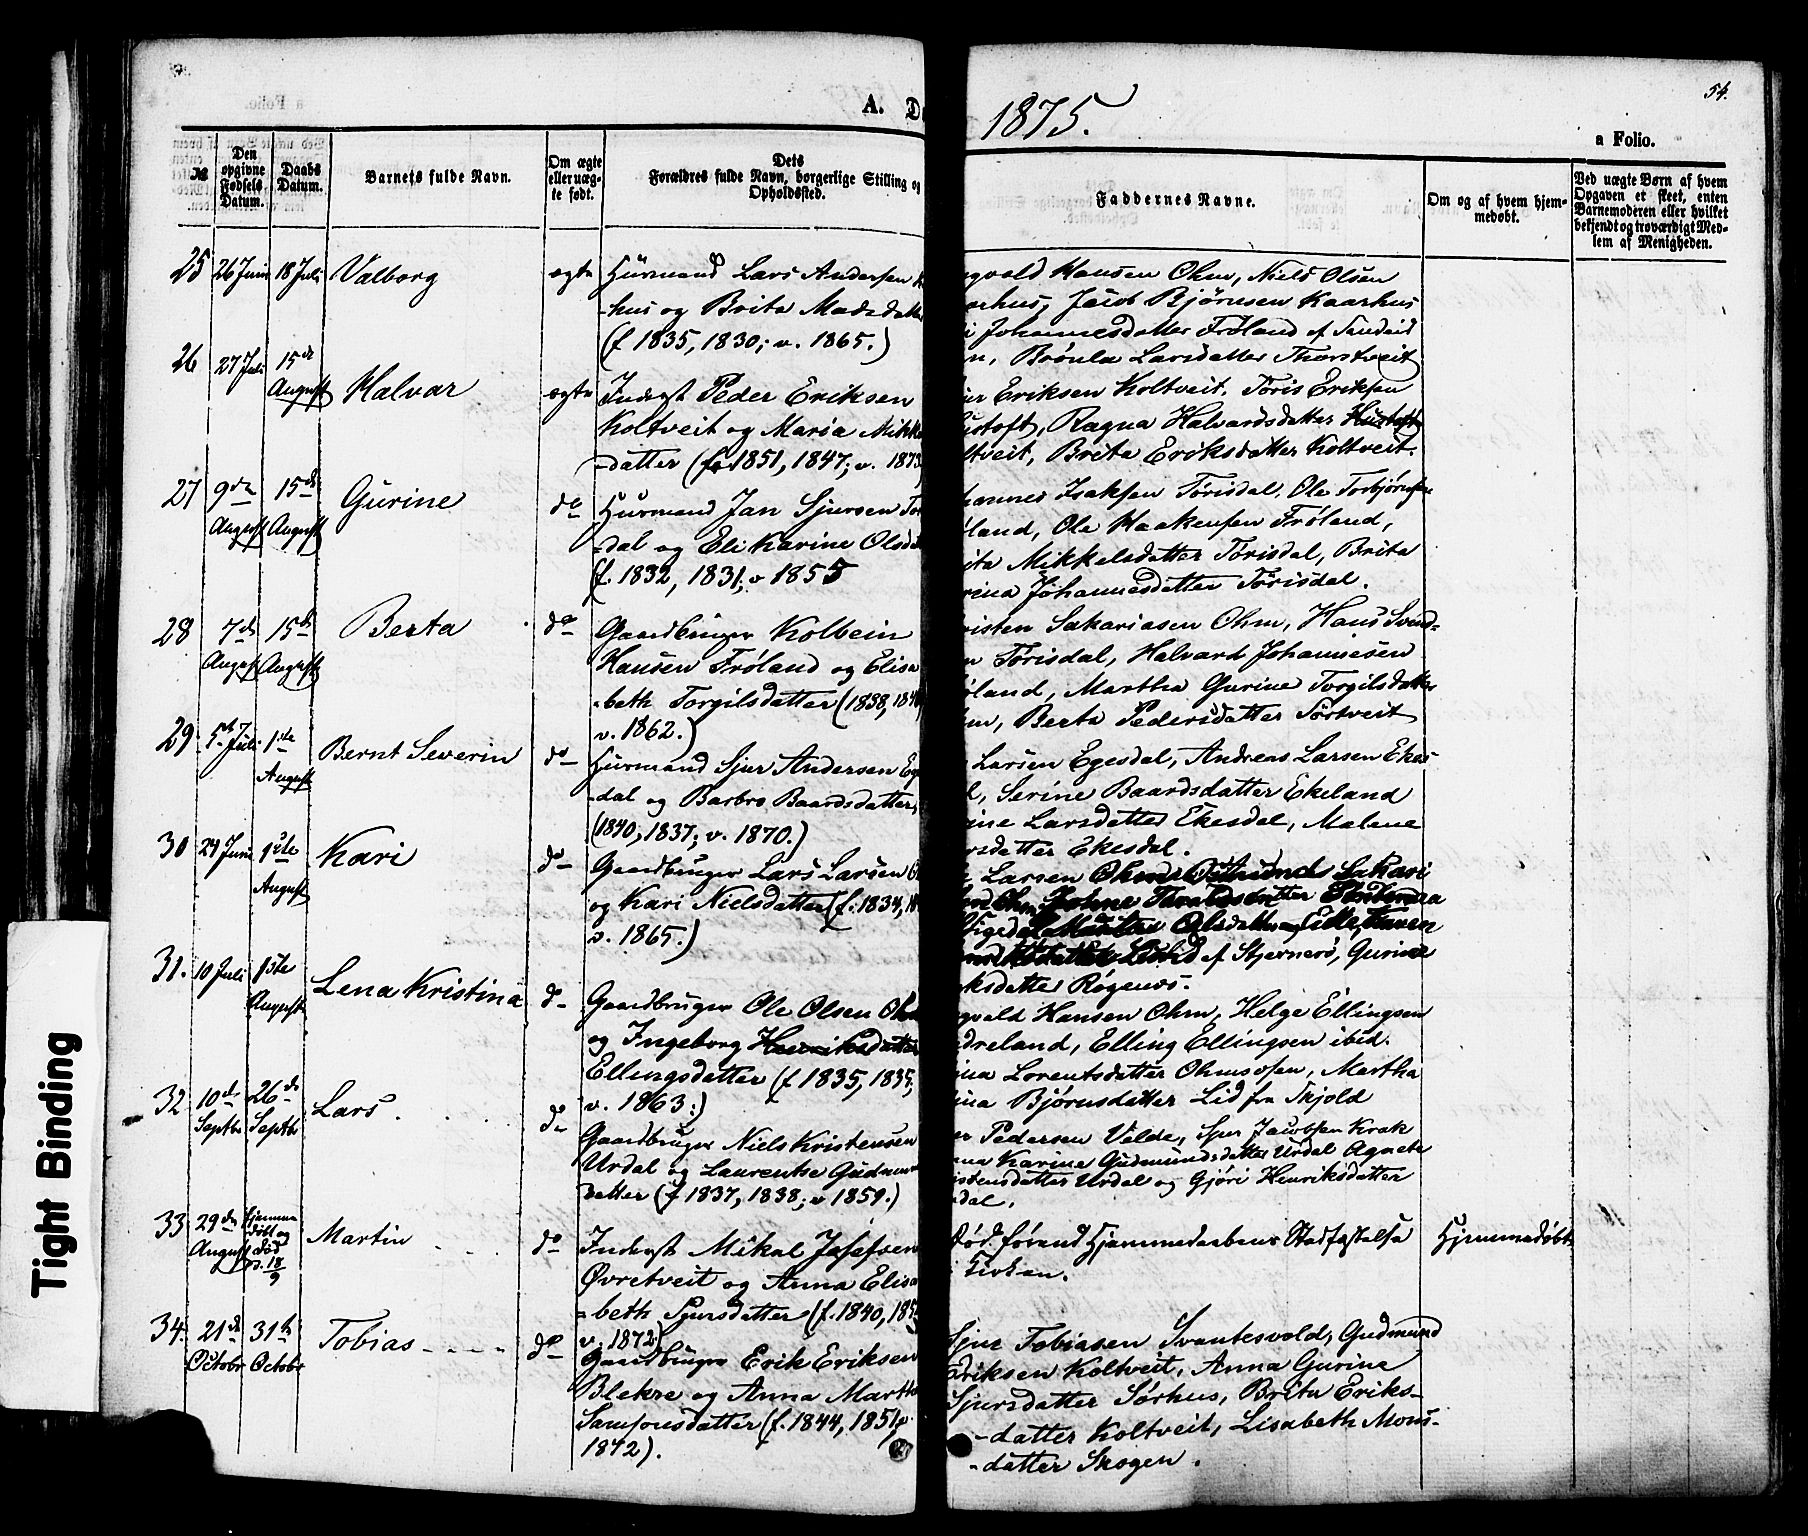 54.
A. D
1875.
a Folio.
№
Den opgivne Fødsels Datum.
Daabs Datum.
Barnets fulde Navn.
Om ægte eller uægte født.
Dets Forældres fulde Navn, borgerlige Stilling og Opholdssted.
Faddernes Navne.
Om og af hvem hjemmedøbt.
Ved uægte Børn af hvem Opgaven et skeet, enten Barnemoderen eller hvilket bekjendt og troværdigt Medlem af Menigheden.
25 26 Juni 18 Juli Valborg ægte Huusmand Lars Andersen
-hus og Brita Madsdatter
(f 1835, 1830; v. 1865.)
gvald Hansen Ohm, Niels Olsen
arhus, Jacob Bjørnsen Kaarhus
Johannesdatter Frøland af Sandeid
n, Brønla Larsdatter Thorstveit
26 27 Juli 15de August Halvar ægte Inderst Peder Eriksen
Koltveit og Maria Mikke
-datter (f. 1851, 1847; v. 1873
er Eriksen Koltveit, Toris Eriksen
ustoft, Ragna Halvardsdatter Hustoft
ltveit, Brita Eriksdatter Koltveit.
27 9de August 15de August Gurine do Huusmand Jan Sjursen Tor
-dal og Eli Karine Olsda
(f. 1832, 1831; v 1855
hannes Isaksen Torisdal, Ole Torbjørnsen
land, Ole Haakensen Frøland,
ita Mikkelsdatter Torisdal, Brita
rina Johannesdatter Torisdal.
28 7de August 15de August Berta do Gaardbruger Kolbein
Hansen Frøland og Elisa
-beth Torgilsdatter (1838, 1840
v. 1862.)
risten Sakariasen Ohm, Hans Svend-
n Torisdal, Halvard Johannesen
øland, Martha Gurine Torgilsdatter
hm, Berta Pedersdatter Tortveit
29 5te Juli 1ste August Bernt Severin do Huusmand Sjur Andersen Eg
-dal og Barbro Baardsdatter
(1840, 1837; v. 1870.)
Larsen Egesdal, Andreas Larsen Ekes
l, Serine Baardsdatter Ekeland
ine Larsdatter Ekesdal, Malene
rsdatter Ekesdal.
30 24 Juni 1ste August Kari do Gaardbruger Lars Larsen
og Kari Nielsdatter (f. 1834, 18
v. 1865.)
Larsen Ohm, Osmund Sakari
Lid af Stjernerø, Gurine
ksdatter Røgenes.
31. 10 Juli 1ste August Lena Kristina do Gaardbruger Ole Olsen Ohm
og Ingeborg Henriksdatter
Ellingsdatter (f 1835, 1835,
v. 1863.)
gvald Hansen Ohm, Helge Ellingsen
dreland, Elling Ellingsen ibid.
gina Lorentsdatter Ohmsosen, Martha
ina Bjørnsdatter Lid fra Skjold
32 10de Septbr 26de Septbr Lars. do Gaardbruger Niels Kristensen
Urdal og Laurentse Gudmun
datter (f 1837, 1838; v 1859.)
er Pedersen Velde, Sjur Jacobsen Krak
na Karina Gudmundsdatter Urdal Agnete
istensdatter Urdal og Gjøri Henriksdatter
dal.
33 29de August hjemmedøbt og død 18/9 Martin do Inderst Mikal Josefsen
Øvretveit og Anna Elisa
-beth Sjursdatter (f. 1840, 185
v. 1872)
Død førend Hjemmedaabens Stadfæstelse
i Kirken.
Hjemmedøbt
34. 21de Octobr 31te Octobr Tobias do Gaardbruger Erik Eriksen
Blekre og Anna Martha
Samsonsdatter (f. 1844, 1851, v.
1872).
Sjur Tobiasen Svantesvold, Gudmund
Eriksen Koltveit, Anna Gurina
Sjursdatter Sørhus, Brita Eriks-
-datter Koltveit, Lisabeth Mons-
-datter Skogen.
Tight Binding